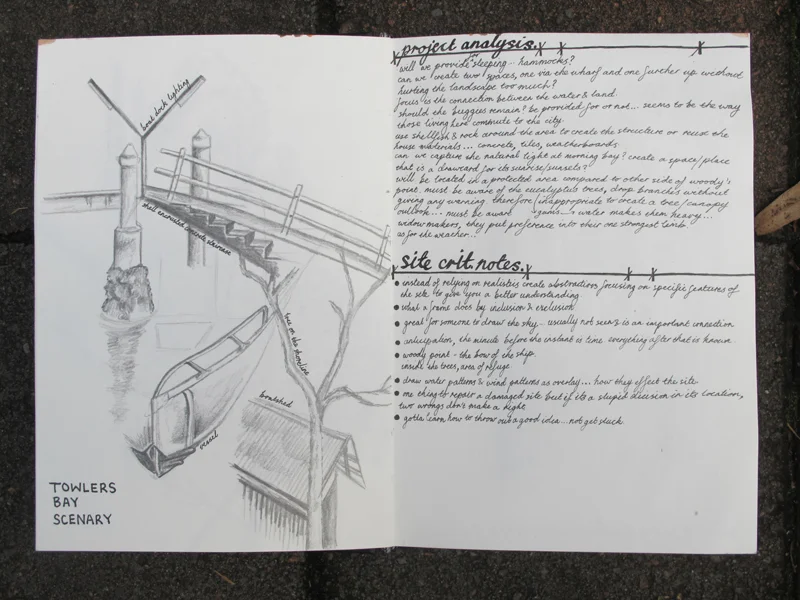 boat dock lighting
shell encrusted concrete staircase
tree on the shoreline
boatshed
vessel
TOWLERS
BAY
SCENARY
project analysis.
will we provide for sleeping... hammocks?
can we create two spaces, one via the wharf and one further up without
hurting the landscape too much?
focus is the connection between the water & land.
should the buggies remain? be provided for or not... seems to be the way
those living here commute to the city.
use shellfish & rock around the area to create the structure or reuse the
house materials... concrete, tiles, weatherboards
can we capture the natural light at morning bay? create a space/place
that is a drawcard for its sunrise/sunsets?
will be located in a protected area compared to other side of woody's
point. must be aware of the eucalyptus trees, drop branches without
giving any warning. therefore inappropriate to create a tree/canopy
outlook... must be aware gums water makes them heavy...
widow makers, they put preference into their one strongest limb
as for the weather...
site crit. notes.
instead of relying on realistics create abstractions focusing on specific features of
the site to give you a better understanding
what a frame does by inclusion & exclusion
great for someone to draw the sky... usually not seen & is an important connection
anticipation, the minute before the instant is time everything after that is known
woody point - the bow of the ship.
inside the trees, area of refuge
draw water patterns & wind patterns as overlay... how they effect the site
one thing to repair a damaged site but if its a stupid decision in its location,
two wrongs don't make a right
gotta learn how to throw out a good idea... not get stuck.